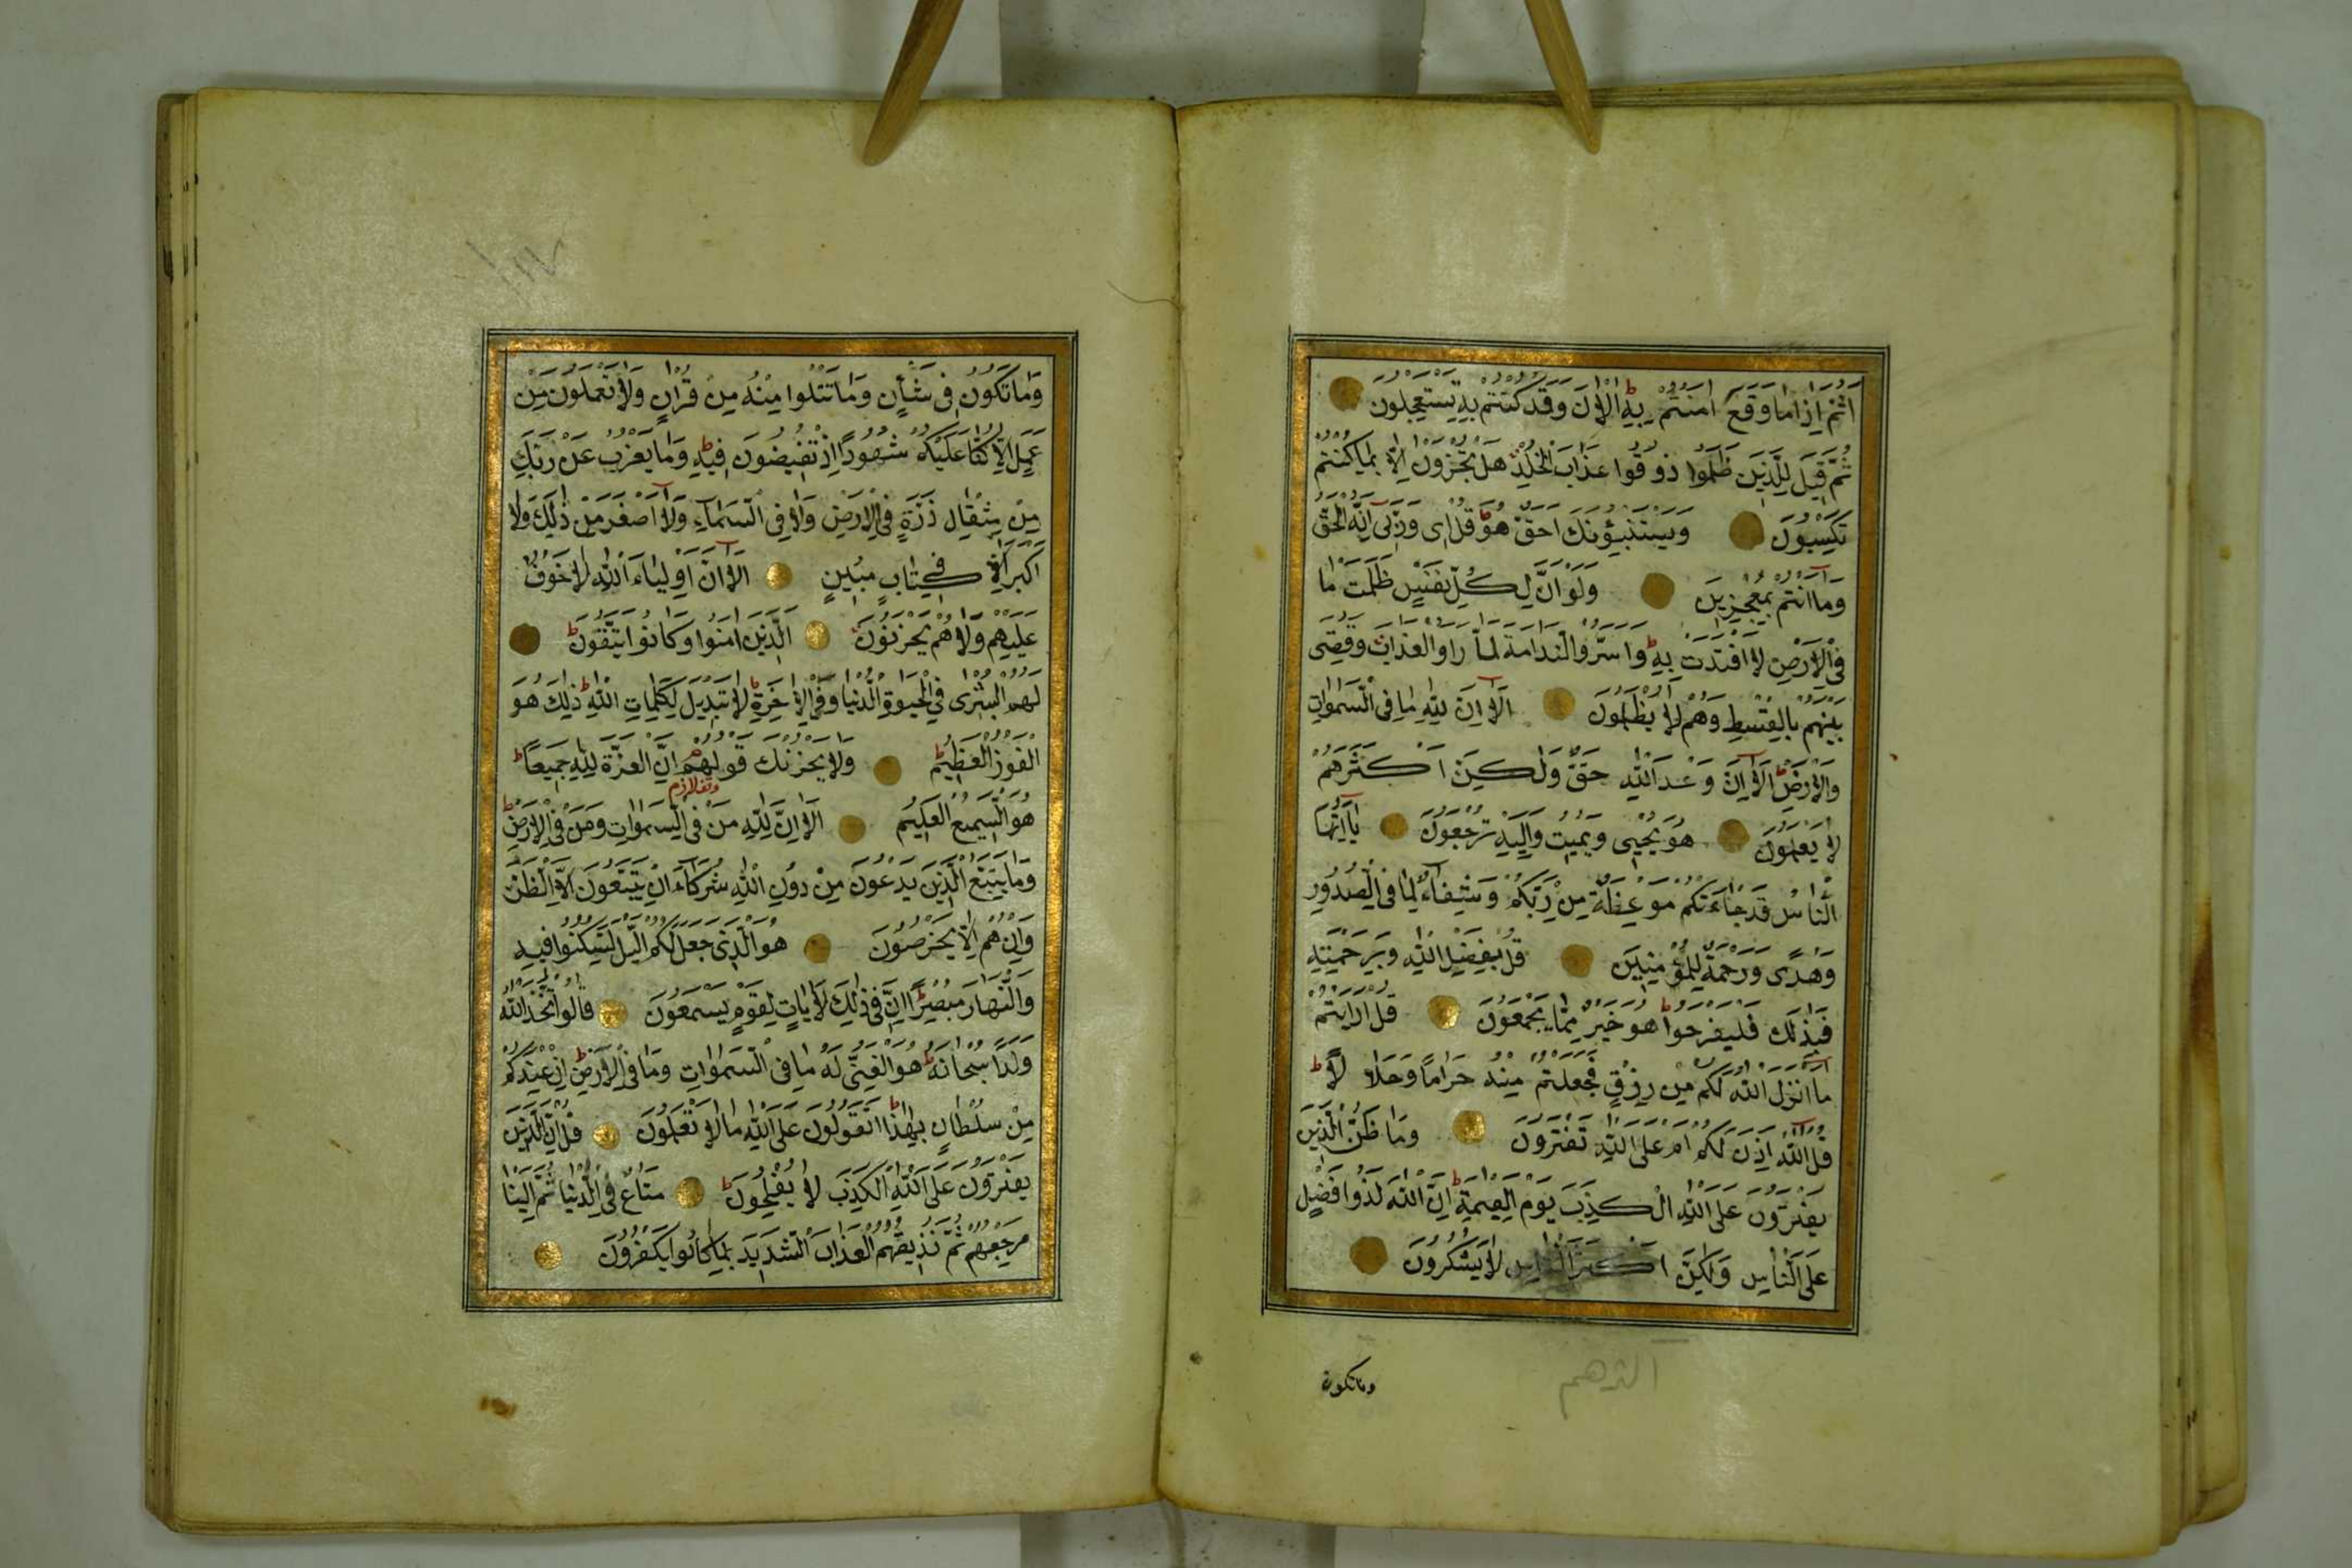 اَثُمَّ اِذَا مَا وَقَعَ اٰمَنْتُمْ بِهٖ ط اٰلْاٰنَ وَقَدْ كُنْتُمْ بِهٖ تَسْتَعْجِلُونَ
ثُمَّ قِيلَ لِلَّذِينَ ظَلَمُوا ذُوقُوا عَذَابَ الْخُلْدِ هَلْ تُجْزَوْنَ اِلَّا بِمَا كُنْتُمْ
تَكْسِبُونَ وَيَسْتَنْبِؤُنَكَ اَحَقٌّ هُوَ ط قُلْ اِى وَرَبِّى اِنَّهُ لَحَقٌّ
وَمَا اَنْتُمْ بِمُعْجِزِينَ وَلَوْ اَنَّ لِكُلِّ نَفْسٍ ظَلَمَتْ مَا
فِى الْاَرْضِ لَافْتَدَتْ بِهٖ ط وَاَسَرُّوا النَّدَامَةَ لَمَّا رَاَوُا الْعَذَابَ وَقُضِىَ
بَيْنَهُمْ بِالْقِسْطِ وَهُمْ لَا يُظْلَمُونَ اَلَا اِنَّ لِلّٰهِ مَا فِى السَّمٰوَاتِ
وَالْاَرْضِ ط اَلَا اِنَّ وَعْدَ اللّٰهِ حَقٌّ وَلٰكِنَّ اَكْثَرَهُمْ
لَا يَعْلَمُونَ هُوَ يُحْيِى وَيُمِيتُ وَاِلَيْهِ تُرْجَعُونَ يَا اَيُّهَا
النَّاسُ قَدْ جَاءَتْكُمْ مَوْعِظَةٌ مِنْ رَبِّكُمْ وَشِفَاءٌ لِمَا فِى الصُّدُورِ
وَهُدًى وَرَحْمَةٌ لِلْمُؤْمِنِينَ قُلْ بِفَضْلِ اللّٰهِ وَبِرَحْمَتِهِ
فَبِذٰلِكَ فَلْيَفْرَحُوا ط هُوَ خَيْرٌ مِمَّا يَجْمَعُونَ قُلْ اَرَاَيْتُمْ
مَا اَنْزَلَ اللّٰهُ لَكُمْ مِنْ رِزْقٍ فَجَعَلْتُمْ مِنْهُ حَرَامًا وَحَلَالًا ط
قُلْ اٰللّٰهُ اَذِنَ لَكُمْ اَمْ عَلَى اللّٰهِ تَفْتَرُونَ وَمَا ظَنُّ الَّذِينَ
يَفْتَرُونَ عَلَى اللّٰهِ الْكَذِبَ يَوْمَ الْقِيٰمَةِ ط اِنَّ اللّٰهَ لَذُوا فَضْلٍ
عَلَى النَّاسِ وَلٰكِنَّ اَكْثَرَ النَّاسِ لَا يَشْكُرُونَ
وماتكون
وَمَا تَكُونُ فِى شَأْنٍ وَمَا تَتْلُوا مِنْهُ مِنْ قُرْاٰنٍ وَلَا تَعْمَلُونَ مِنْ
عَمَلٍ اِلَّا كُنَّا عَلَيْكُمْ شُهُودًا اِذْ تُفِيضُونَ فِيهِ ط وَمَا يَعْزُبُ عَنْ رَبِّكَ
مِنْ مِثْقَالِ ذَرَّةٍ فِى الْاَرْضِ وَلَا فِى السَّمَاءِ وَلَا اَصْغَرَ مِنْ ذٰلِكَ وَلَا
اَكْبَرَ اِلَّا فِى كِتَابٍ مُبِينٍ اَلَا اِنَّ اَوْلِيَاءَ اللّٰهِ لَا خَوْفٌ
عَلَيْهِمْ وَلَا هُمْ يَحْزَنُونَ اَلَّذِينَ اٰمَنُوا وَكَانُوا يَتَّقُونَ ط
لَهُمُ الْبُشْرٰى فِى الْحَيٰوةِ الدُّنْيَا وَفِى الْاٰخِرَةِ ط لَا تَبْدِيلَ لِكَلِمَاتِ اللّٰهِ ط ذٰلِكَ هُوَ
الْفَوْزُ الْعَظِيمُ ط وَلَا يَحْزُنْكَ قَوْلُهُمْ م اِنَّ الْعِزَّةَ لِلّٰهِ جَمِيعًا ط
وقف لازم
هُوَ السَّمِيعُ الْعَلِيمُ اَلَا اِنَّ لِلّٰهِ مَنْ فِى السَّمٰوَاتِ وَمَنْ فِى الْاَرْضِ ط
وَمَا يَتَّبِعُ الَّذِينَ يَدْعُونَ مِنْ دُونِ اللّٰهِ شُرَكَاءَ اِنْ يَتَّبِعُونَ اِلَّا الظَّنَّ
وَاِنْ هُمْ اِلَّا يَخْرُصُونَ هُوَ الَّذِى جَعَلَ لَكُمُ الَّيْلَ لِتَسْكُنُوا فِيهِ
وَالنَّهَارَ مُبْصِرًا ط اِنَّ فِى ذٰلِكَ لَاٰيَاتٍ لِقَوْمٍ يَسْمَعُونَ قَالُوا اتَّخَذَ اللّٰهُ
وَلَدًا سُبْحَانَهُ ط هُوَ الْغَنِىُّ لَهُ مَا فِى السَّمٰوَاتِ وَمَا فِى الْاَرْضِ ط اِنْ عِنْدَكُمْ
مِنْ سُلْطَانٍ بِهٰذَا ط اَتَقُولُونَ عَلَى اللّٰهِ مَا لَا تَعْلَمُونَ قُلْ اِنَّ الَّذِينَ
يَفْتَرُونَ عَلَى اللّٰهِ الْكَذِبَ لَا يُفْلِحُونَ ط مَتَاعٌ فِى الدُّنْيَا ثُمَّ اِلَيْنَا
مَرْجِعُهُمْ ثُمَّ نُذِيقُهُمُ الْعَذَابَ الشَّدِيدَ بِمَا كَانُوا يَكْفُرُونَ